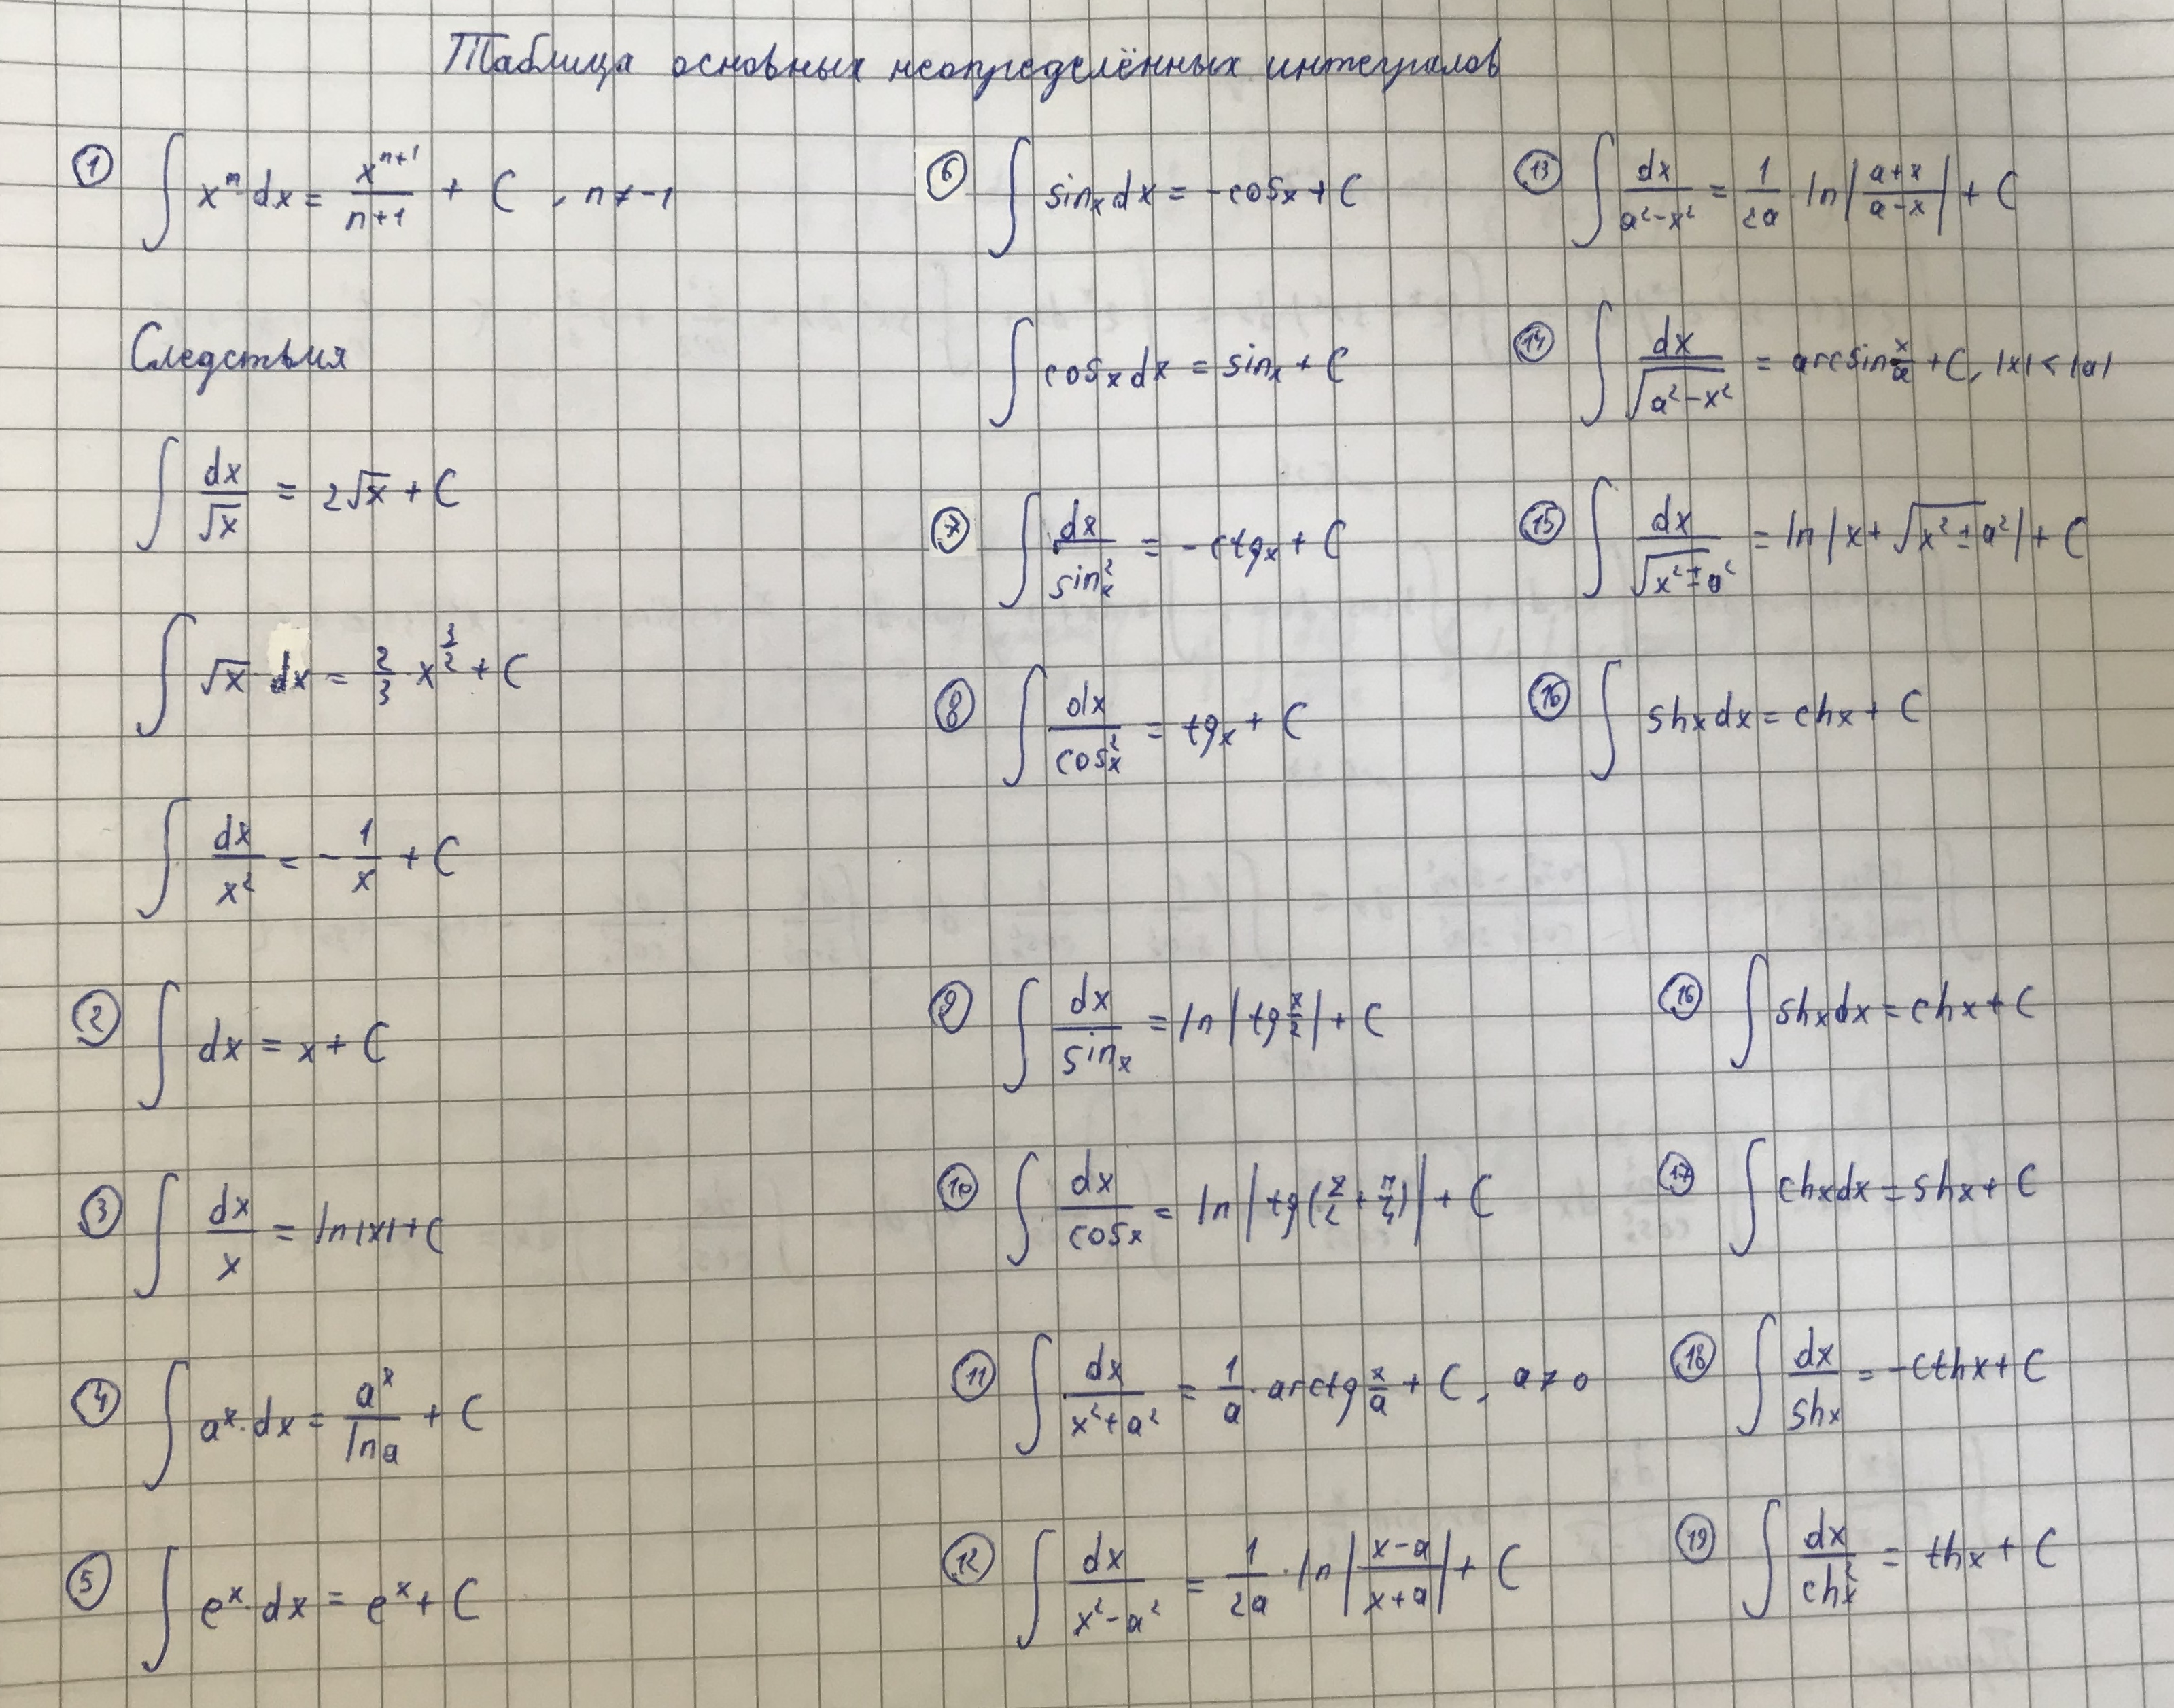 Таблица основных неопределённых интегралов
① ∫ xⁿ·dx = xⁿ⁺¹/(n+1) + C, n ≠ -1
Следствия
∫ dx/√x = 2√x + C
∫ √x dx = 2/3·x^(3/2) + C
∫ dx/x² = -1/x + C
② ∫ dx = x + C
③ ∫ dx/x = ln|x| + C
④ ∫ aˣ·dx = aˣ/ln a + C
⑤ ∫ eˣ·dx = eˣ + C
⑥ ∫ sin x dx = -cos x + C
∫ cos x dx = sin x + C
⑦ ∫ dx/sin²x = -ctg x + C
⑧ ∫ dx/cos²x = tg x + C
⑨ ∫ dx/sin x = ln|tg x/2| + C
⑩ ∫ dx/cos x = ln|tg(x/2 + π/4)| + C
⑪ ∫ dx/(x²+a²) = 1/a·arctg x/a + C, a ≠ 0
⑫ ∫ dx/(x²-a²) = 1/2a·ln|(x-a)/(x+a)| + C
⑬ ∫ dx/(a²-x²) = 1/2a·ln|(a+x)/(a-x)| + C
⑭ ∫ dx/√(a²-x²) = arcsin x/a + C, |x| < |a|
⑮ ∫ dx/√(x²±a²) = ln|x+√(x²±a²)| + C
⑯ ∫ sh x dx = ch x + C
⑯ ∫ sh x dx = ch x + C
⑰ ∫ ch x dx = sh x + C
⑱ ∫ dx/sh x = -cth x + C
⑲ ∫ dx/ch²x = th x + C